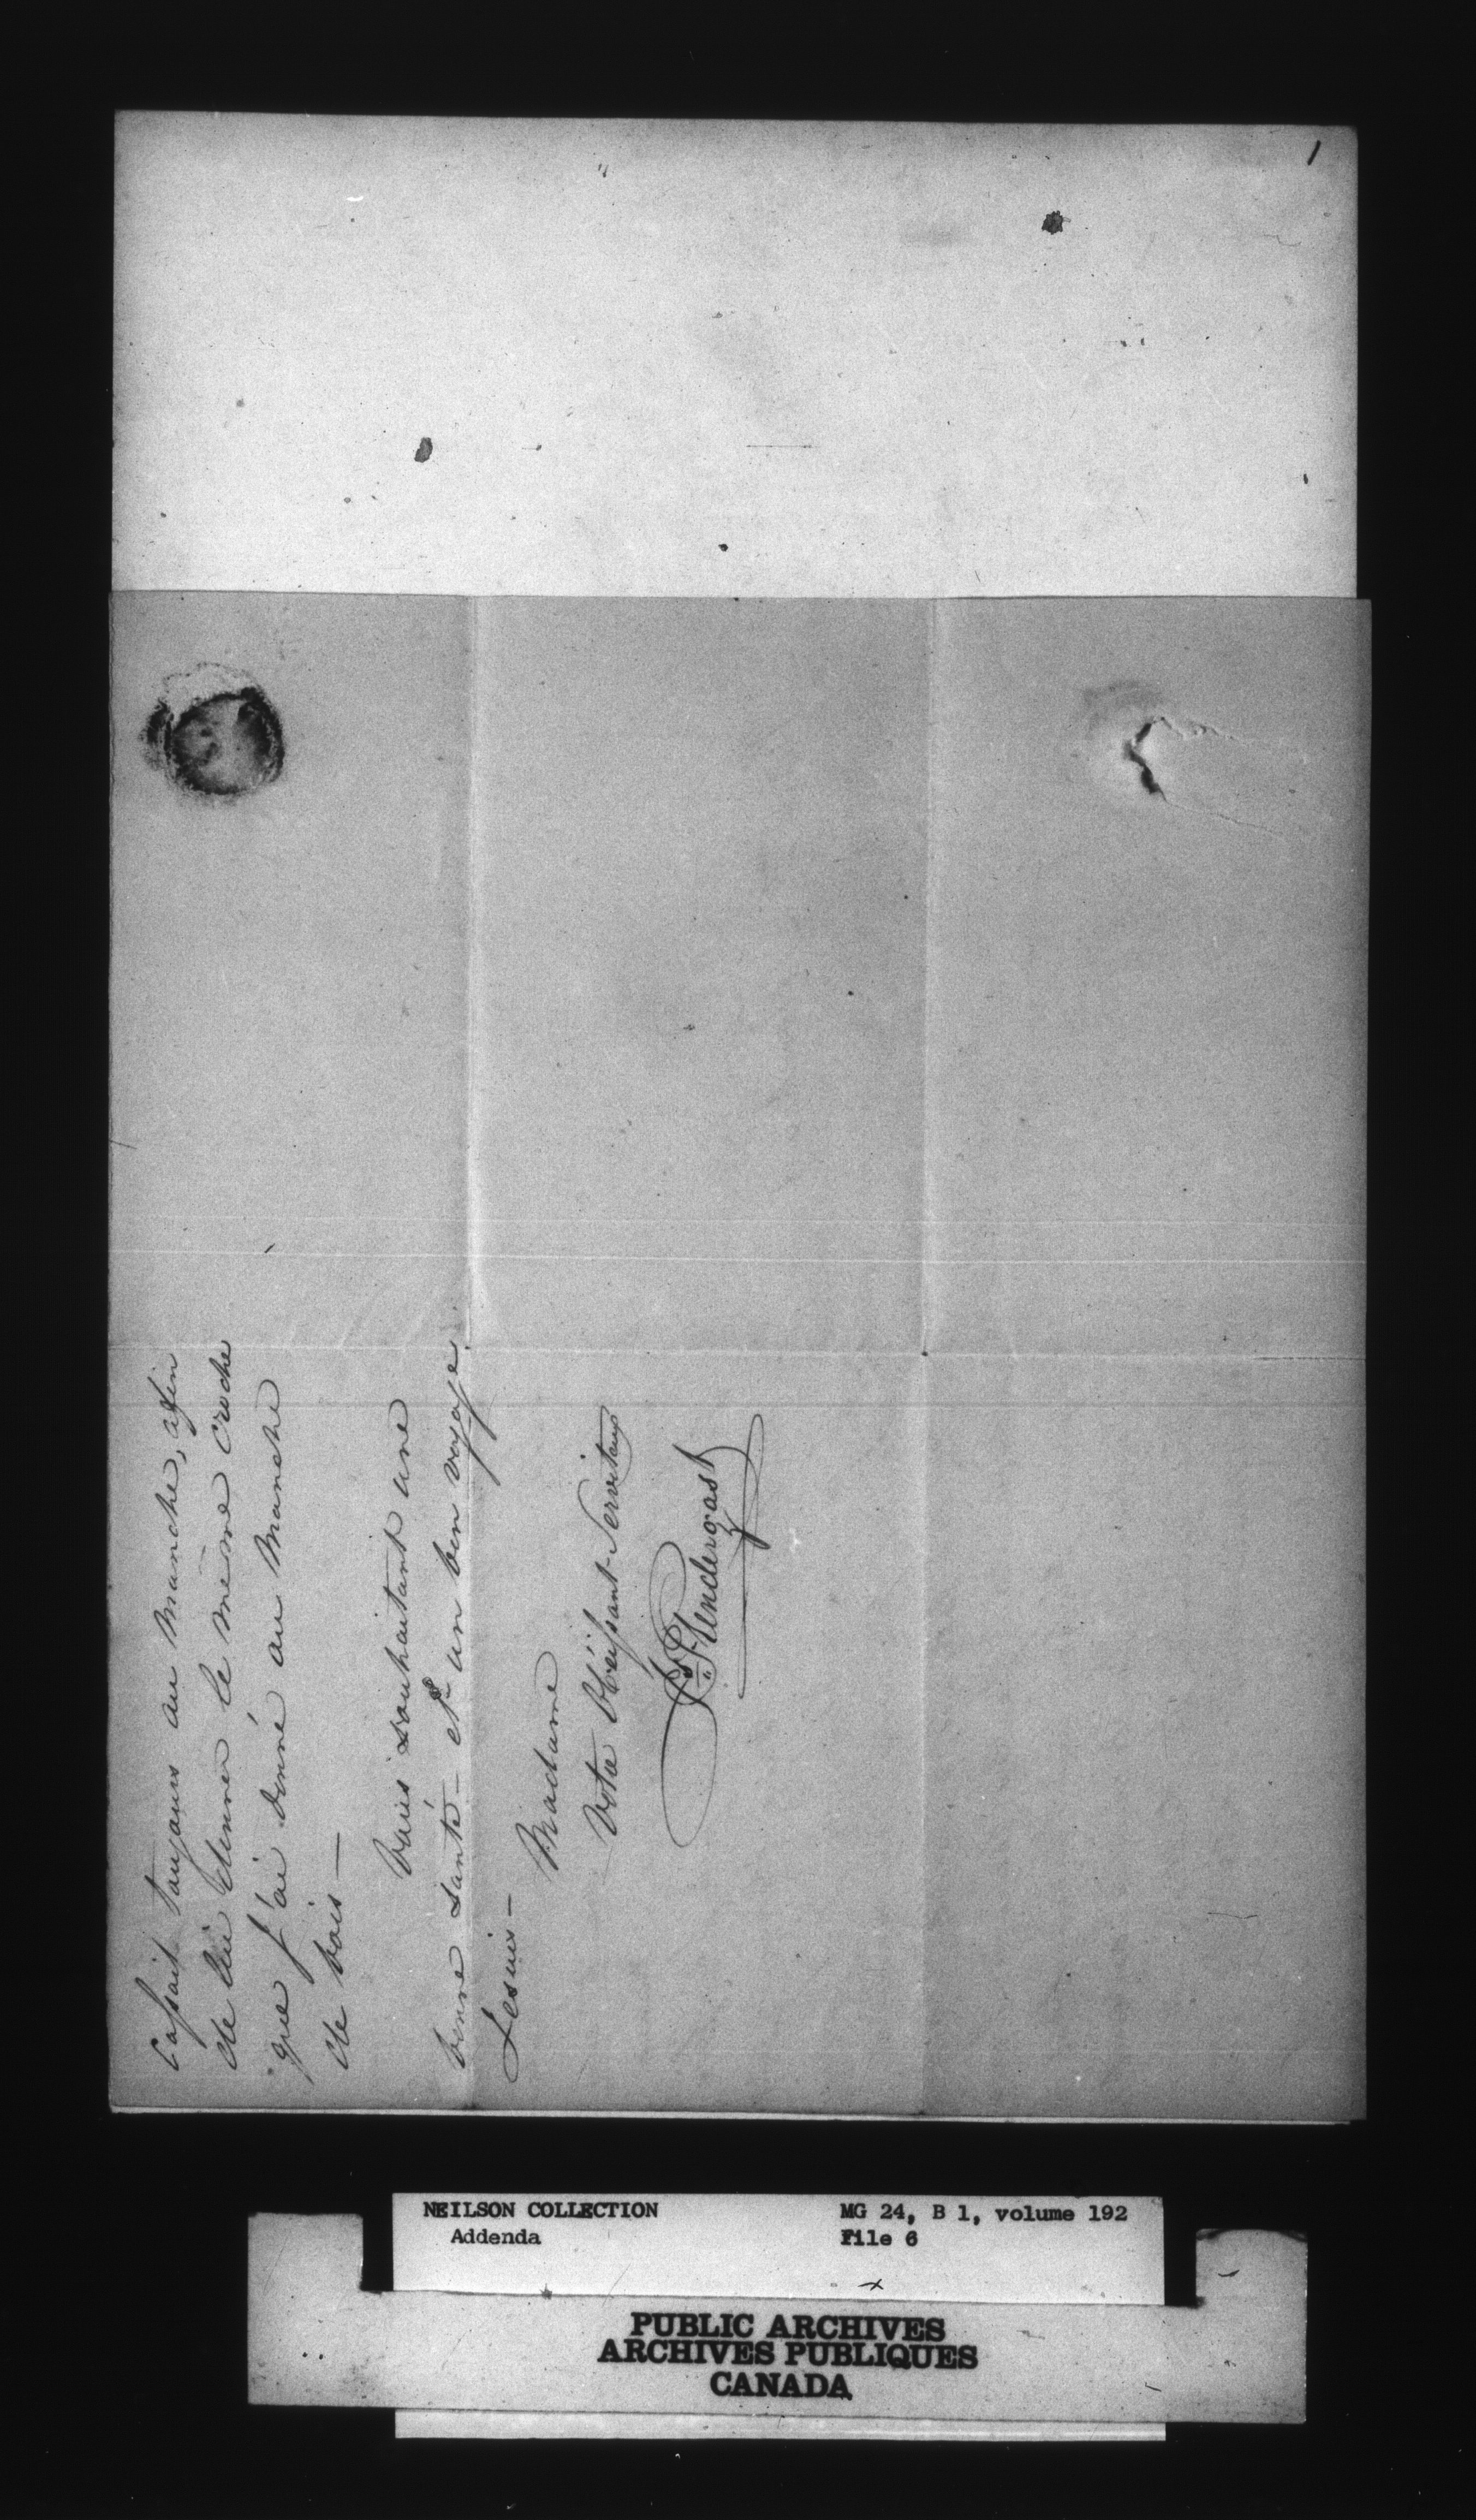 1
Cassait toujours au manche, afin
de lui donner le même croche
que j'ai donné au manche
de bois —
Vous souhaitant une
bonne santé — et un bon voyage
Je suis —
Madame
Votre Obéissant Serviteur
Js. Pendergast
NEILSON COLLECTION
Addenda
MG 24, B 1, volume 192
File 6
PUBLIC ARCHIVES
ARCHIVES PUBLIQUES
CANADA